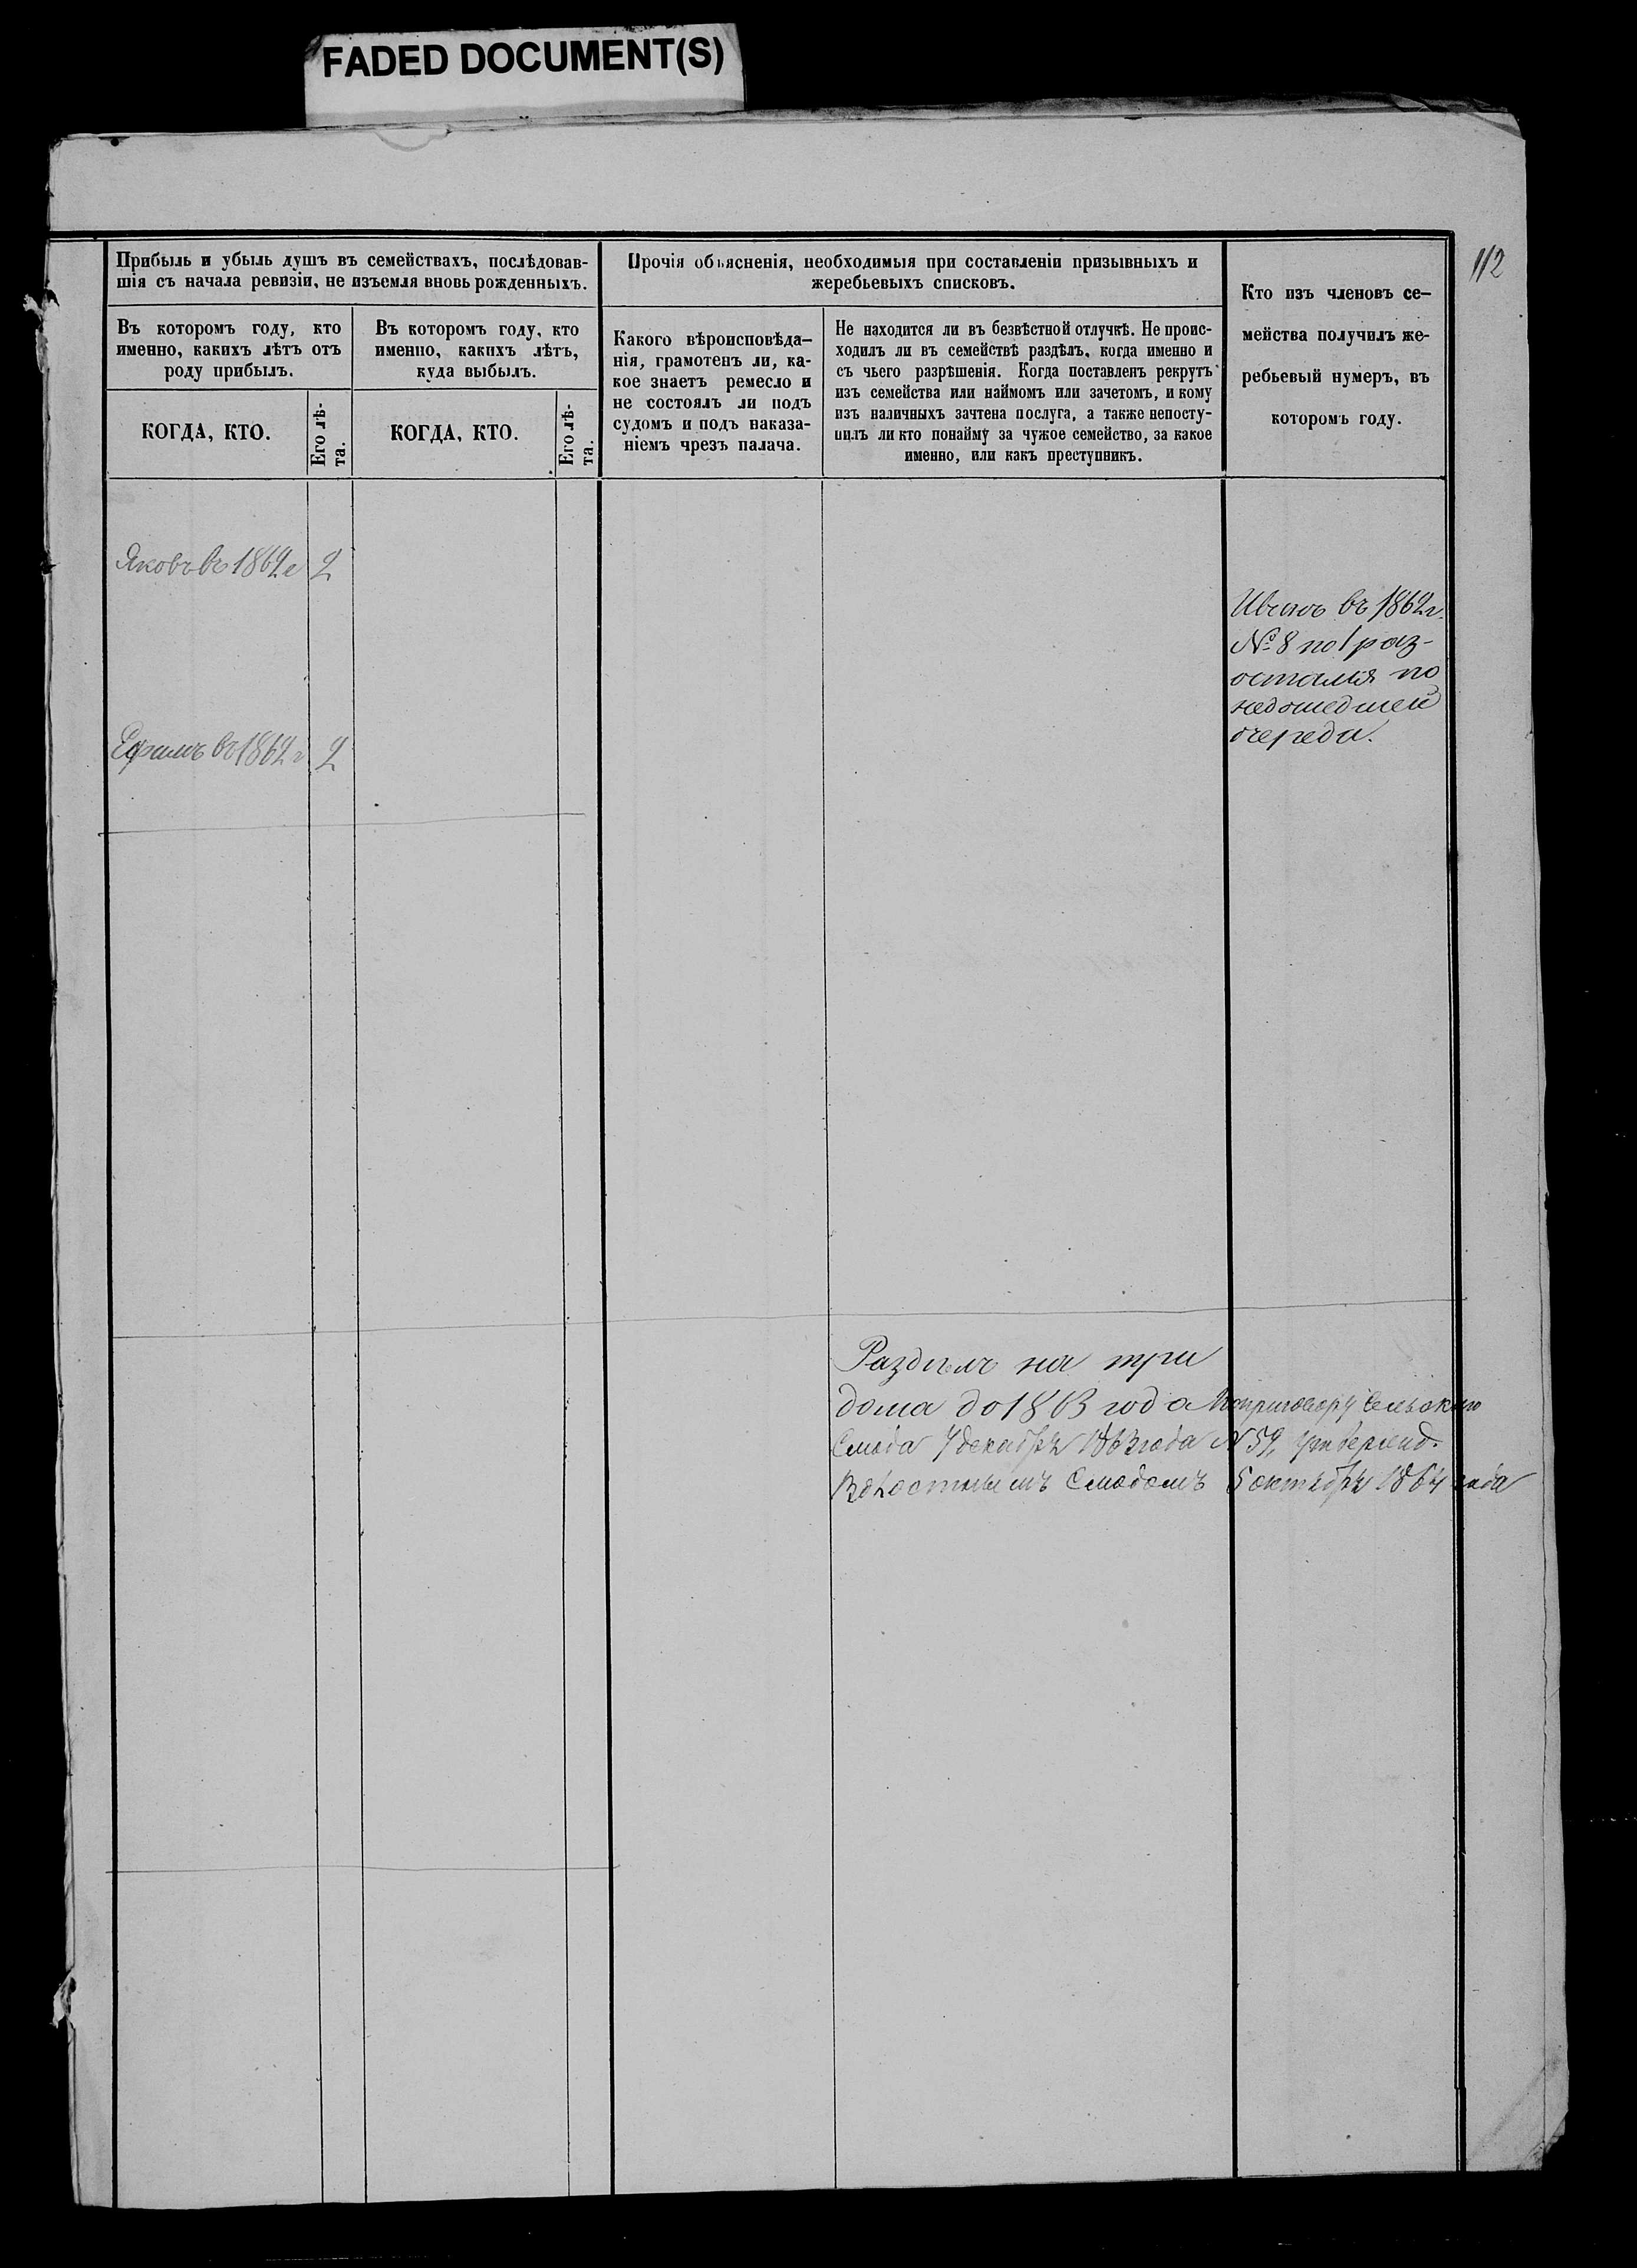 FADED DOCUMENT(S)
112
Прибыль и убыль душъ въ семействахъ, послѣдовав-
шія съ начала ревизіи, не изъемля вновь рожденныхъ.
Въ которомъ году, кто
именно, какихъ лѣтъ отъ
роду прибылъ.
КОГДА, КТО.
Его лѣ-
та.
Въ которомъ году, кто
именно, какихъ лѣтъ,
куда выбылъ.
КОГДА, КТО.
Его лѣ-
та.
Прочія объясненія, необходимыя при составленіи призывныхъ и
жеребьевыхъ списковъ.
Какого вѣроисповѣда-
нія, грамотенъ ли, ка-
кое знаетъ ремесло и
не состоялъ ли подъ
судомъ и подъ наказа-
ніемъ чрезъ палача.
Не находится ли въ безвѣстной отлучкѣ. Не проис-
ходилъ ли въ семействѣ раздѣлъ, когда именно и
съ чьего разрѣшенія. Когда поставленъ рекрутъ
изъ семейства или наймомъ или зачетомъ, и кому
изъ наличныхъ зачтена послуга, а также непосту-
пилъ ли кто понайму за чужое семейство, за какое
именно, или какъ преступникъ.
Кто изъ членовъ се-
мейства получилъ же-
ребьевый нумеръ, въ
которомъ году.
Яковъ въ 1862 г 2
Иванъ въ 1862 г.
№ 8 по 1 раз-
остался по
недошедшей
очереди.
Ефимъ въ 1862 г 2
Раздѣлъ на три
дома до 1863 года По приговору Сельскаго
Схода 7 декабря 1863 года N 59, утвержд.
Волостнымъ Сходомъ 5 октября 1864 года